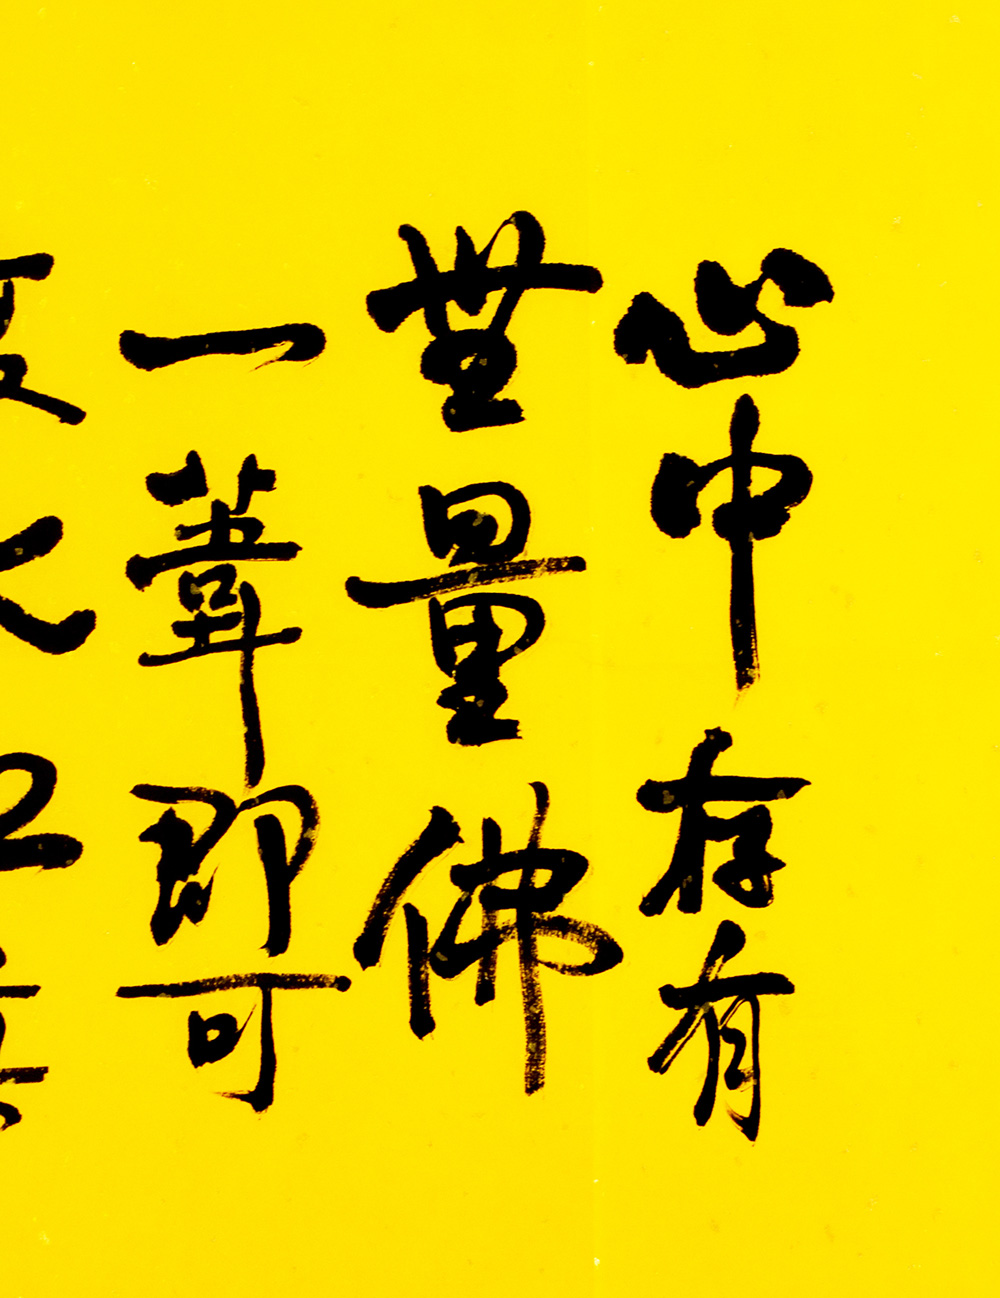 心中存有
無量佛
一葦即可